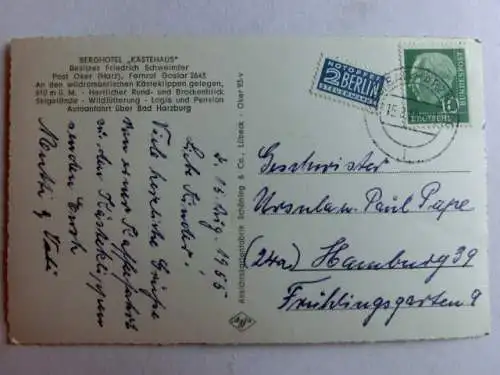 BERGHOTEL „KÄSTEHAUS"
Besitzer Friedrich Schweimler
Post Oker (Harz), Fernruf Goslar 2645
An den wildromantischen Kästeklippen gelegen,
610 m ü. M. - Herrlicher Rund- und Brockenblick
Skigelände - Wildfütterung - Logis und Pension
Autoanfahrt über Bad Harzburg
d. 15. Aug. 1955
Liebe Kinder!
Viele herzliche Grüße
von einer Kaffeefahrt
zu den Kästeklippen
senden Euch
Mutti & Vati
Ansichtskartenfabrik Schöning & Co., Lübeck · Oker 115-v
NOTOPFER
2 BERLIN
STEUERMARKE
DEUTSCHE
BUNDESPOST
Geschwister
Ursula u. Paul Pape
(24a) Hamburg 39
Frühlingsgarten 9